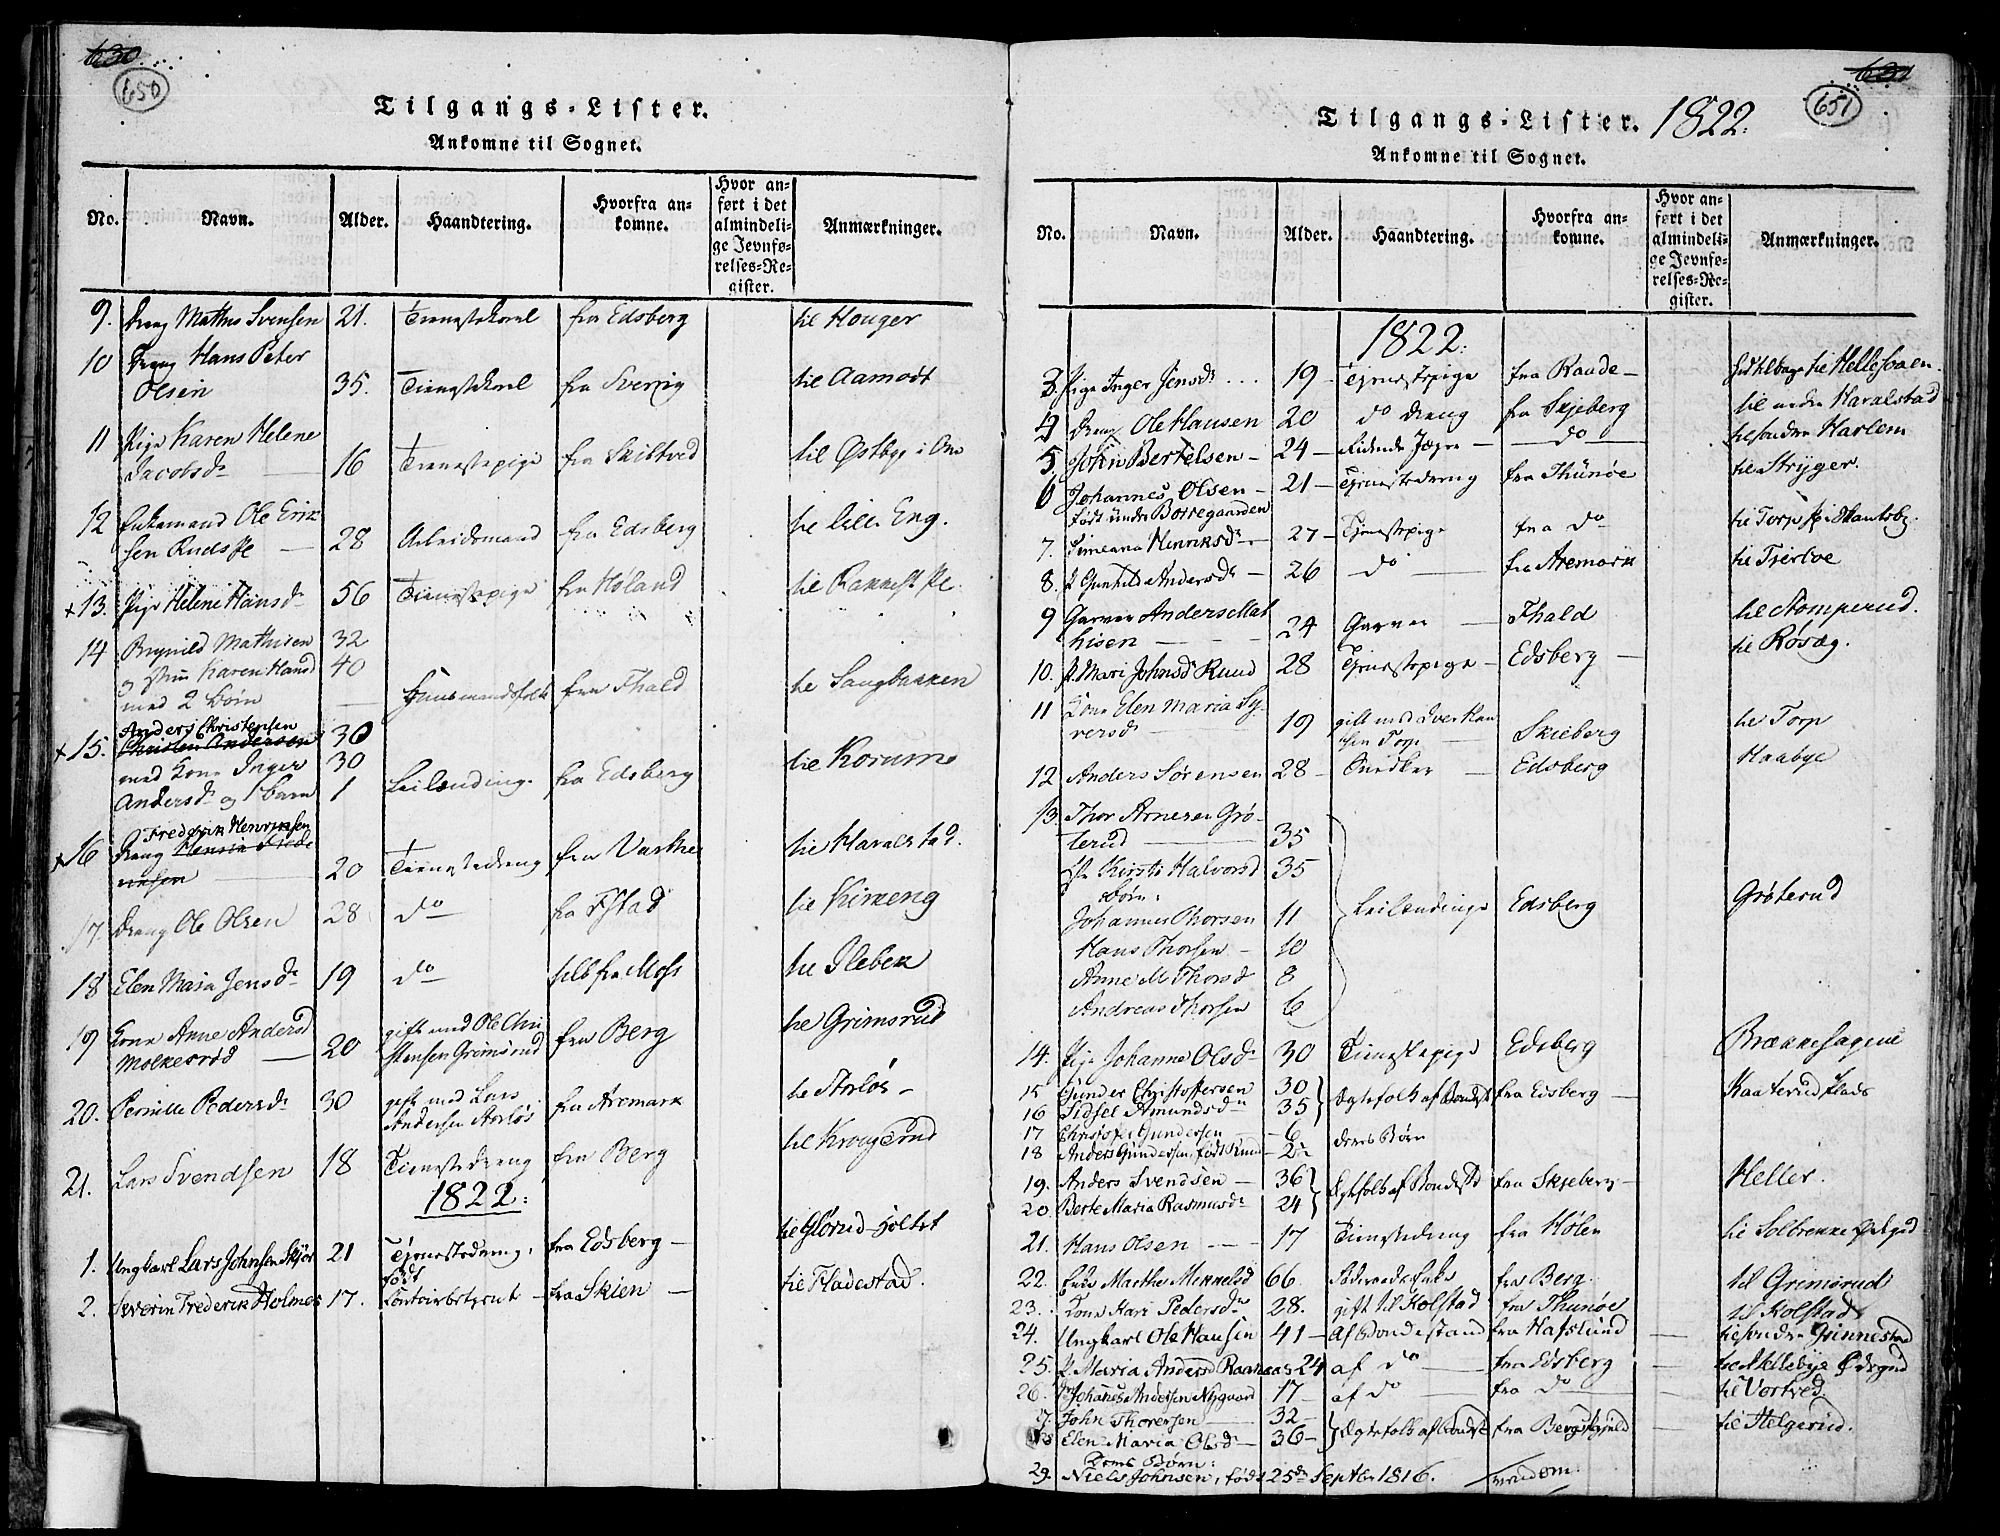 630
650
Tilgangs-Lister.
Ankomne til Sognet.
No.
Navn.
Alder.
Haandtering.
Hvorfra an-
komne.
Hvor an-
ført i det
almindeli-
ge Jevnfø-
relses-Re-
gister.
Anmærkninger.
9. Dreng Mathis Svensen 21. Tienestekarl fra Edsberg til Houger
10 Dreng Hans Peter
Olsen 35. Tienestekarl fra Sverrig til Aamodt
11 Pige Karen Helene
Jacobsdr 16 Tienestepige fra Skibtvid til Østbye i Om
12 Enkemand Ole Erik
sen Ruds Pl 28 Arbeidsmand fra Edsberg til lille Eng.
+ 13. Pige Helene Hansdr 56 Tienestepige fra Høland til Pl.
14 Brynild Mathisen 32
og Karen Hansd 40
med 2 børn Huusmandsfolk fra Thald til Saugbakken
Anders Christensen
+ 15. Christen Andersen 30
med Kone Inger 30
Andersdr og 1 barn 1 Leilænding fra Edsberg til Korum
Frederik Henriksen
+ 16 Dreng Henrik Frede
riksen 20 Tienestedreng fra til Haralstad.
17. Dreng Ole Olsen 28 do fra til Kirkeng
18 Elen Maria Jensdr 19 do fra Moss til Ilebek
19 Kone Anne Andersd gift med Ole Chri
Molkerød 20 stensen Grimsrud fra Berg til Grimsrud
20. Pernille Pedersdr 30 gift med Lars
Andersen fra Aremark til
21. Lars Svendsen 18 Tienestedreng fra Berg til Kragerud
1822:
1. Ungkarl Lars Johnsen 21 Tjenestedreng, fra Edsberg til Glørud
2. Severin Frederik Holmes 17. født
fra Skien til Fladestad.
631
651
Tilgangs-Lister. 1822.
Ankomne til Sognet.
No.
Navn.
Alder.
Haandtering.
Hvorfra an-
komne.
Hvor an-
ført i det
almindeli-
ge Jevnfø-
relses-Re-
gister.
Anmærkninger.
1822:
3. Pige Inger Jensdr 19 Tjenestepige fra Raade
4 Dreng Ole Hansen 20 do dreng fra Skjeberg til nedre Haralstad
5. John Bertelsen 24 Ridende Jæger do til søndre Harlem
6 Johannes Olsen 21 Tjenestedreng fra Thunøe til Stryger.
født Borregaarden
7. Henriksdr 27 Tjenestepige fra do til Torp
8. P Gunhild Andersdr 26 do fra Aremark til
9 Garver Anders Mat
hisen 24 Garver Thald til Stomperud.
10. P. Mari Johnsdr Ruud 28 Tjenestepige Edsberg til
11 Kone Elen Maria Sy
versdr 19 gift med Iver Han
sen Torp Skieberg til Torp
12 Anders Sørensen 28 Snedker Edsberg Haabye
13. Thor Arnesen Grø-
terud 35
Kirsti Halvorsd 35
børn:
Johannes Thorsen 11 Leilænding Edsberg Grøterud
Hans Thorsen 10
Anne M Thorsd 8
Andreas Thorsen 6
14. Pige Johanne Olsdr 30 Tienestepige Edsberg Brækkesagene
15 Gunder Christoffersen 30 Ægtefolk af fra Edsberg Kaaterud Plads
16 Sidsel Amundsdr 35
17 Christofer Gundersen 6 deres Børn
18 Anders Gundersen, født 2
19. Anders Svendsen 36 Ægtefolk af Bondestd fra Skjeberg Heller.
20. Berte Maria Rasmusdr 24
21. Hans Olsen 17 Tienestedreng fra Hølen til Solbrekke
22. Enke Marthe Mikkelsd 66. fra Berg. til Grimsrud
23. Kone Kari Pedersdr 28. gift til Kolstad fra Thunøe til Kolstad
24. Ungkarl Ole Hansen 41 Af Bondestand fra Hafslund til søndre Grinnestad
25. P. Maria Andersd 24 af do fra Edsberg
26. Johanes Andersen Nygaard 17 af do fra do til Vortved
27. John Thorersen 32 Ægtefolk af Bondest fra Berg til Helgerud.
28 Elen Maria Olsdr 36
Deres Børn:
29. Niels Johnsen, født 25de Septbr 1816. vendom.